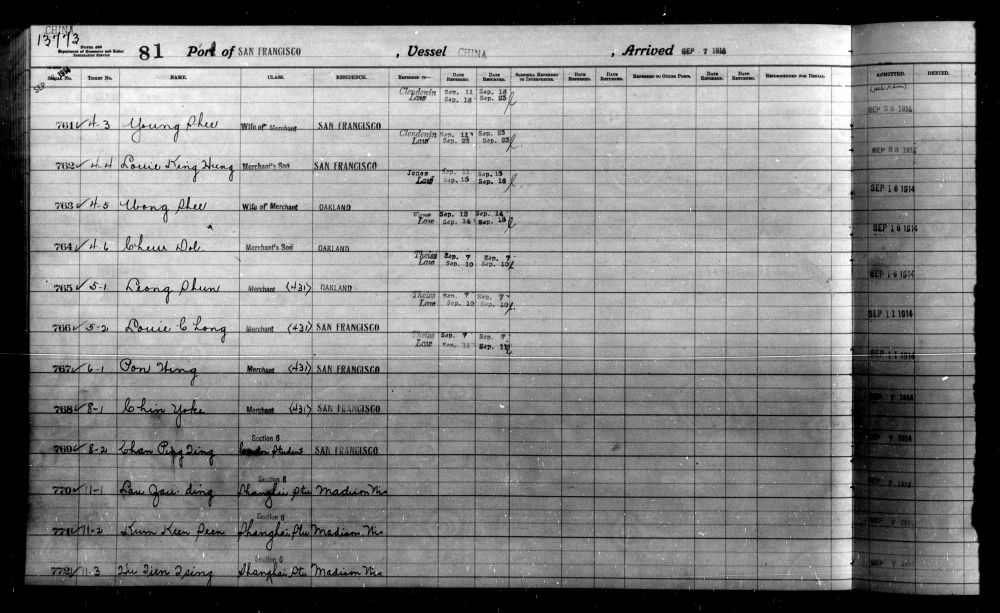 CHINA
13773
Form 430
Department of Commerce and Labor
IMMIGRATION SERVICE
81 Port of SAN FRANCISCO , Vessel CHINA , Arrived SEP 7 1914
SEP 1914
Serial No. Ticket No. Name. Class. Residence. Referred to— Date Referred. Date Returned. Subpoena Referred to Interpreter. Date Referred. Date Returned. Referred to Other Ports. Date Referred. Date Returned. Recommended for Denial. Admitted. Denied.
Clendenin Sep. 11 Sep. 16
Law Sep. 16 Sep. 23
SEP 23 1914
761 ✓ 4-3 Young Shee Wife of Merchant SAN FRANCISCO
Clendenin Sep. 11 Sep. 23
Law Sep. 23 Sep. 23
SEP 23 1914
762 ✓ 4-4 Louie King Hung Merchant's Son SAN FRANCISCO
Jones Sep. 11 Sep. 15
Law Sep. 15 Sep. 16
SEP 16 1914
763 ✓ 4-5 Wong Shee Wife of Merchant OAKLAND
Sep. 12 Sep. 14
Law Sep. 14 Sep. 16
SEP 16 1914
764 ✓ 4-6 Cheu Dol Merchant's Son OAKLAND
Theiss Sep. 7 Sep. 7
Law Sep. 10 Sep. 10
SEP 16 1914
765 ✓ 5-1 Leong Shun Merchant (431) OAKLAND
Theiss Sep. 7 Sep. 7
Law Sep. 10 Sep. 10
SEP 11 1914
766 ✓ 5-2 Louie Chong Merchant (431) SAN FRANCISCO
Theiss Sep. 7 Sep. 7
Law Sep. 11 Sep. 11
SEP 11 1914
767 ✓ 6-1 Pon Hing Merchant (431) SAN FRANCISCO
SEP 7 1914
768 ✓ 8-1 Chin Yoke Merchant (431) SAN FRANCISCO
SEP 7 1914
Section 6
769 ✓ 8-2 Chan Ping Ting Student SAN FRANCISCO
SEP 7 1914
Section 6
770 ✓ 11-1 Lau Jau-ding Shanghai Stu Madison Wis
SEP 7 191
Section 6
771 ✓ 11-2 Kum Keen Seen Shanghai Stu Madison, Wis
SEP 7
Section 6
772 ✓ 11-3 Tu Tien Tsing Shanghai Stu Madison Wis